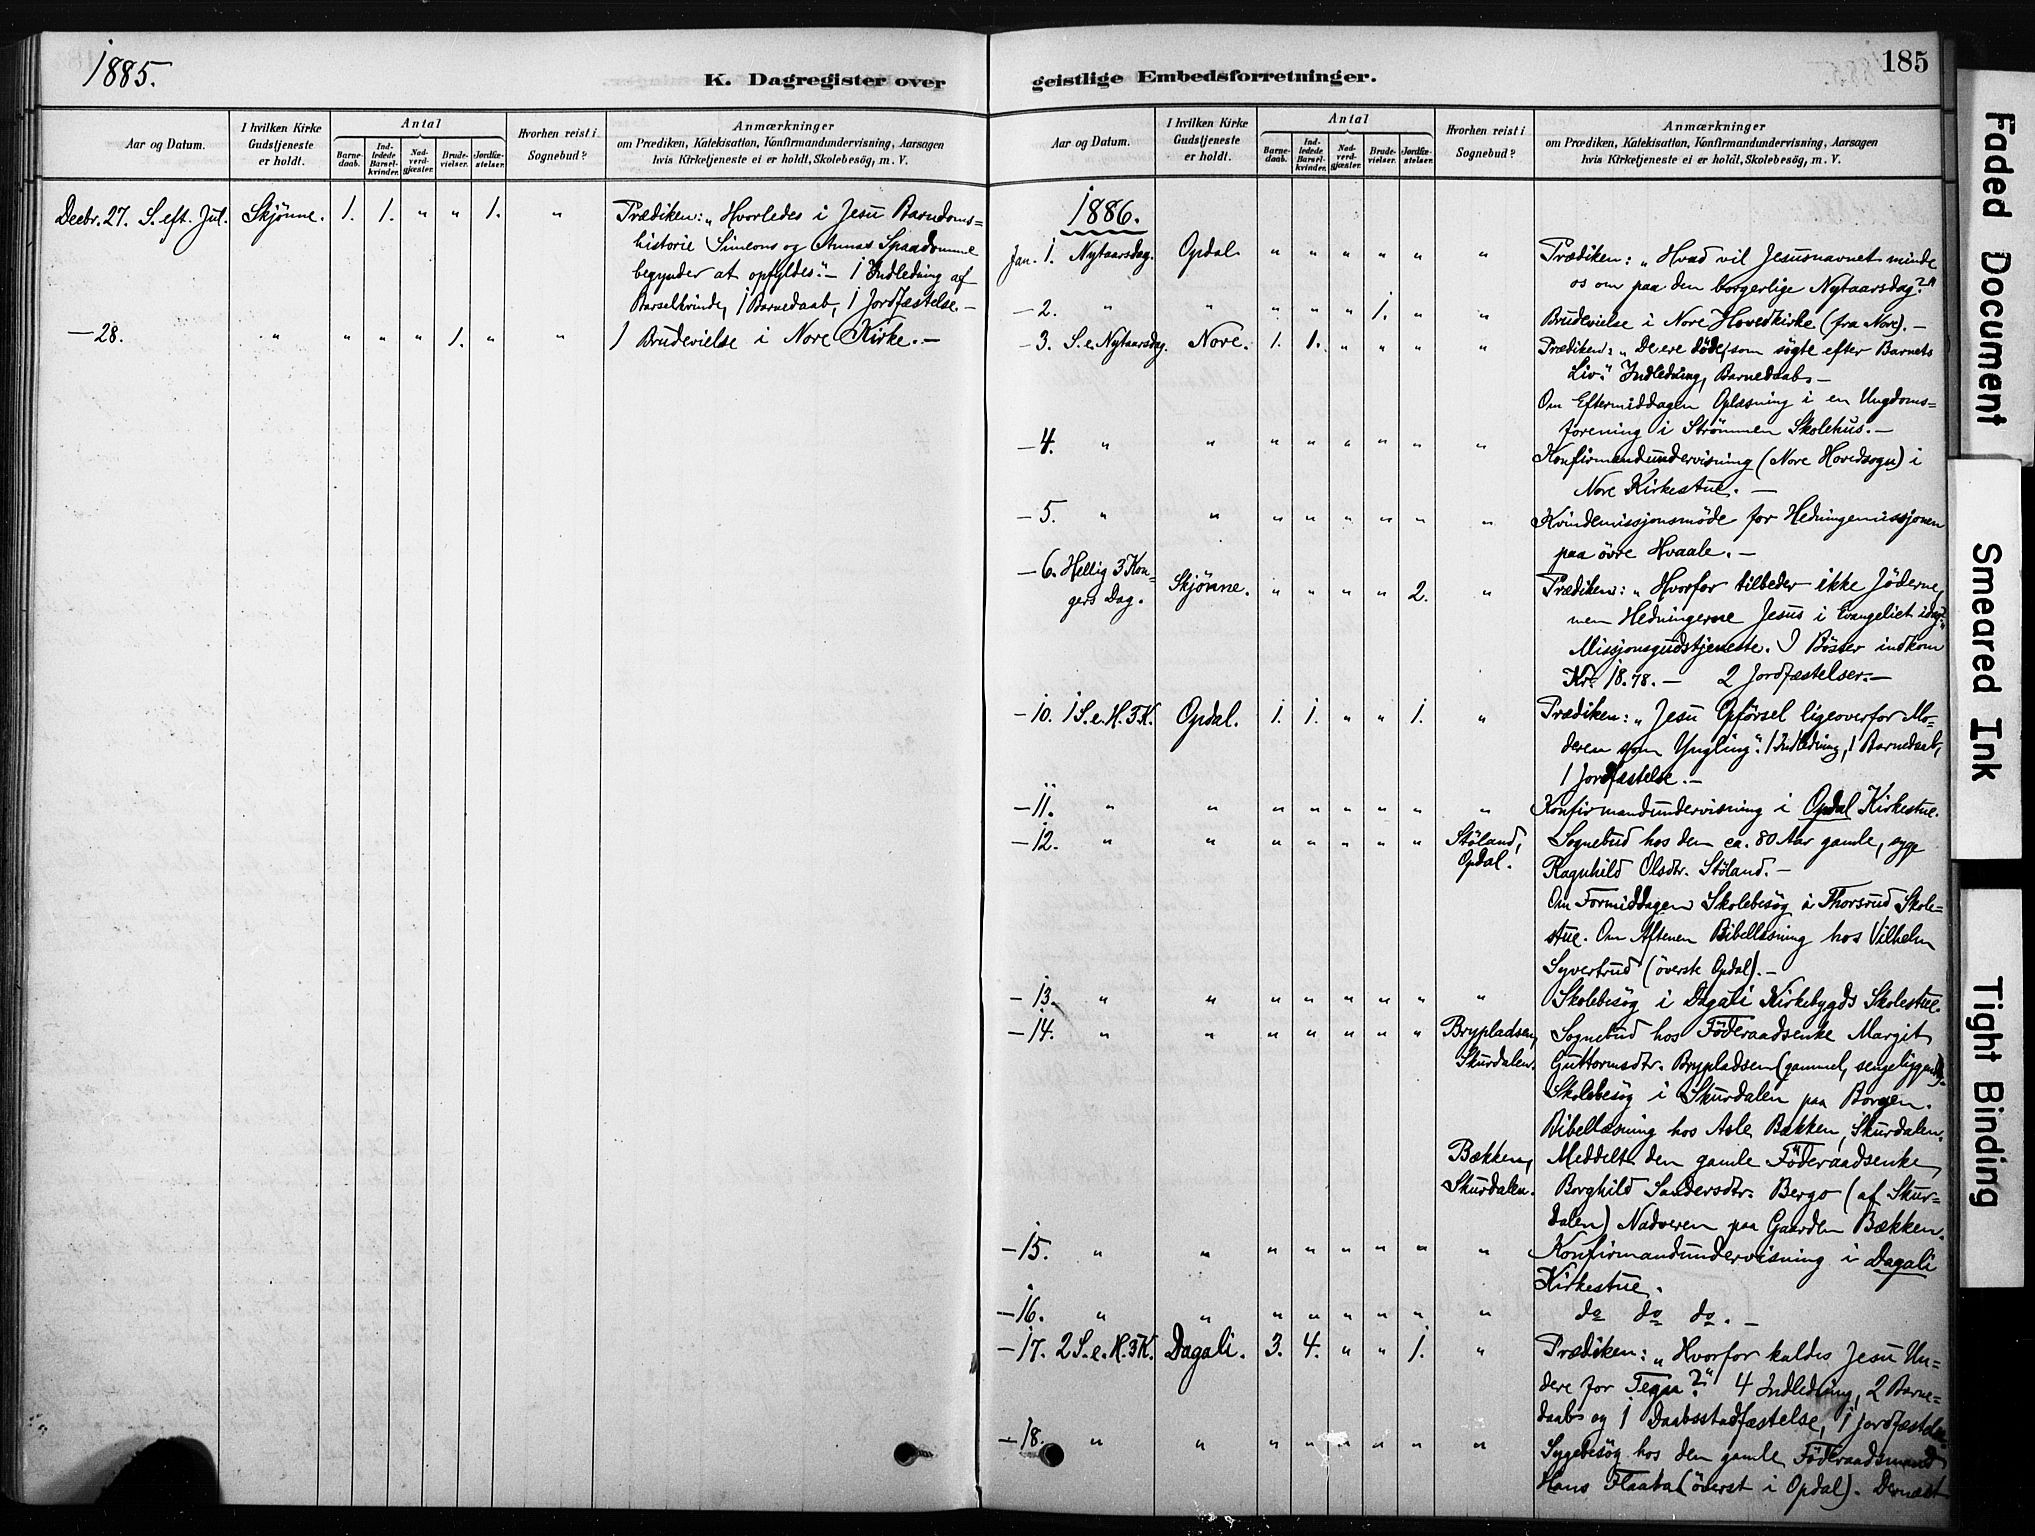 1885.
K. Dagregister over
Aar og Datum.
I hvilken Kirke
Gudstjeneste
er holdt.
Antal
Barne-
daab.
Ind-
ledede
Barsel-
kvinder.
Nad-
verd-
gjæster.
Brude-
vielser.
Jordfæ-
stelser.
Hvorhen reist i
Sognebud?
Anmærkninger
om Prædiken, Katekisation, Konfirmandundervisning, Aarsagen
hvis Kirketjeneste ei er holdt, Skolebesög, m. V.
Decbr. 27. S. eft. Jul. Skjönne. 1. 1. " " 1. " Prædiken: „Hvorledes i Jesu Barndoms=
historie Simeons og Annas Spaadomme
begynder at opfyldes". — 1 Indledning af
Barselkvinde, 1 Barnedaab, 1 Jordfæstelse. —
— 28. " " " " 1. " " 1 Brudevielse i Nore Kirke. —
geistlige Embedsforretninger.
185
Aar og Datum.
I hvilken Kirke
Gudstjeneste
er holdt.
Antal
Barne-
daab.
Ind-
ledede
Barsel-
kvinder.
Nad-
verd-
gjæster.
Brude-
vielser.
Jordfæ-
stelser.
Hvorhen reist i
Sognebud?
Anmærkninger
om Prædiken, Katekisation, Konfirmandundervisning, Aarsagen
hvis Kirketjeneste ei er holdt, Skolebesög, m. V.
1886.
Jan. 1. Nytaarsdag. Opdal " " " " " " Prædiken: „Hvad vil Jesusnavnet minde
os om paa den borgerlige Nytaarsdag?"
— 2. " " " " " 1. " " Brudevielse i Nore Hovedkirke (fra Nore). —
— 3. S. e. Nytaarsdag. Nore. 1. 1. " " " " Prædiken: „De ere döde, som sögte efter Barnets
Liv." Indledning, Barnedaab. —
Om Eftermiddagen Oplæsning i en Ungdoms=
forening i Strömmen Skolehus. —
— 4. " " " " " " " " Konfirmandundervisning (Nore Hovedsogn) i
Nore Kirkestue. —
— 5. " " " " " " " " Kvindemissjonsmöde for Hedningemissjonen
paa övre Hvaale. —
— 6. Hellig 3 Kon=
gers Dag. Skjönne. " " " " 2. " Prædiken: „Hvorfor tilbeder ikke Jöderne,
men Hedningerne Jesus i Evangeliet idag?"
Missjonsgudstjeneste. I Bösser indkom
Kr. 18.78. — 2 Jordfæstelser. —
— 10. 1 S. e. H. 3 K. Opdal. 1. 1. " " 1. " Prædiken: „Jesu Opförsel ligeoverfor Mo=
deren som Yngling". 1 Indledning, 1 Barnedaab,
1 Jordfæstelse. —
— 11. " " " " " " " " Konfirmandundervisning i Opdal Kirkestue.
— 12. " " " " " " " Stöland,
Opdal. Sognebud hos den ca. 80 Aar gamle, syge
Ragnhild Olsdtr. Stöland. —
Om Formiddagen Skolebesög i Thorsrud Skole=
stue. Om Aftenen Bibellæsning hos Vilhelm
Syvertrud (överste Opdal). —
— 13. " " " " " " " " Skolebesög i Dagali Kirkebygds Skolestue.
— 14. " " " " " " " Brypladsen,
Skurdalen. Sognebud hos Föderaadsenke Margit
Guttormsdtr. Brypladsen (gammel, sengeliggende).
Skolebesög i Skurdalen paa Borgen.
Bibellæsning hos Asle Bækken, Skurdalen.
Bækken,
Skurdalen. Meddelt den gamle Föderaadsenke
Borghild Sandersdtr. Bergo (af Skur=
dalen) Nadveren paa Gaarden Bækken.
— 15. " " " " " " " " Konfirmandundervisning i Dagali
Kirkestue.
— 16. " " " " " " " " do do do. —
— 17. 2 S. e. H. 3 K. Dagali. 3. 4. " " 1. " Prædiken: „Hvorfor kaldes Jesu Un=
dere for Tegn?" 4 Indledning, 2 Barne=
daab og 1 Daabsstadfæstelse, 1 Jordfæstelse.
— 18. " " " " " " " " Sygebesög hos den gamle Föderaadsmand
Hans Flaata (överst i Opdal). Dernæst
Faded Document
Smeared Ink
Tight Binding